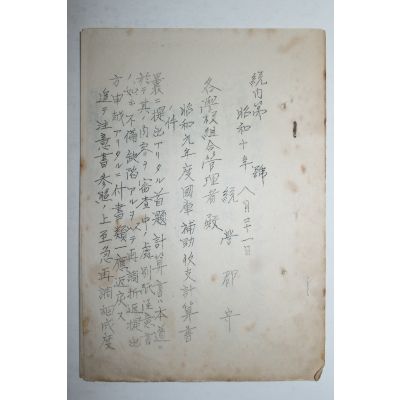 統内第　　號
昭和十年八月二十一日
統營郡守
各學校組合管理者殿
昭和九年度國庫補助收支計算書
ノ件
曩ニ提出アリタル首題計算書ハ本道ニ
於テ其ノ内容ヲ審査中ノ處別紙注意書
ノ如ク不備缺陷アルヲ以テ再調折返提出
方申越アリタルニ付書類一應返戻ス
追テ注意書参照ノ上至急再調相成度